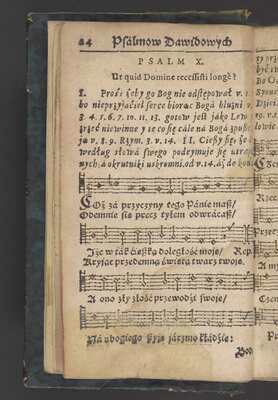 24 Psalmow Dawidowych
PSALM X.
Ut quid Domine recessisti longè?
I. Prosi żeby go Bog nie odstępował v. 1.
bo nieprzyjaciel serce biorąc Boga bluźni v.
3. 4. 5. 6. 7. 10. 11. 13. gotow jest jako Lew
żrzeć niewinne y te co się cále ná Bogá
ja v. 8. 9. Rzym. 3. v. 14. II. Cieszy się, że
według słowá swego podeymuje się
nych, á okrutniki uskromni. od v. 14. áż do
COż zá przyczyny tego Pánie masz/
Odemnie się precz tyłem obwracasz/
Iże w ták cięszką doległość moje/ Rep.
Kryjąc przedemną świętą twarz twoje.
A ono zły złość przewodzi swoje/
Ná ubogiego szyje járzmo kłádzie:
Bog